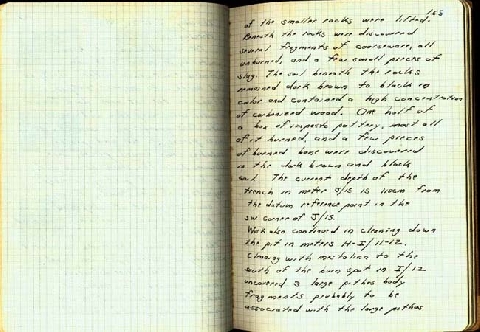 165
of the smaller rocks were lifted.
Beneath the rocks were discovered
several fragments of coarseware, all
unburned, and a few small pieces of
slag. The soil beneath the rocks
remained dark brown to black in
color and contained a high concentration
of carbonized wood. One half of
a box of impasto pottery, most all
of it burned, and a few pieces
of burned bone were discovered
in the dark brown and black
soil. The current depth of the
trench in meter J/15 is 110cm from
the datum reference point in the
SW corner of J/15.
Work also continued in cleaning down
the pit in meters H-I/11-12.
Cleaning with mestolino to the
south of the burn spot in I/12
uncovered 3 large pithos body
fragments probably to be
associated with the large pithos